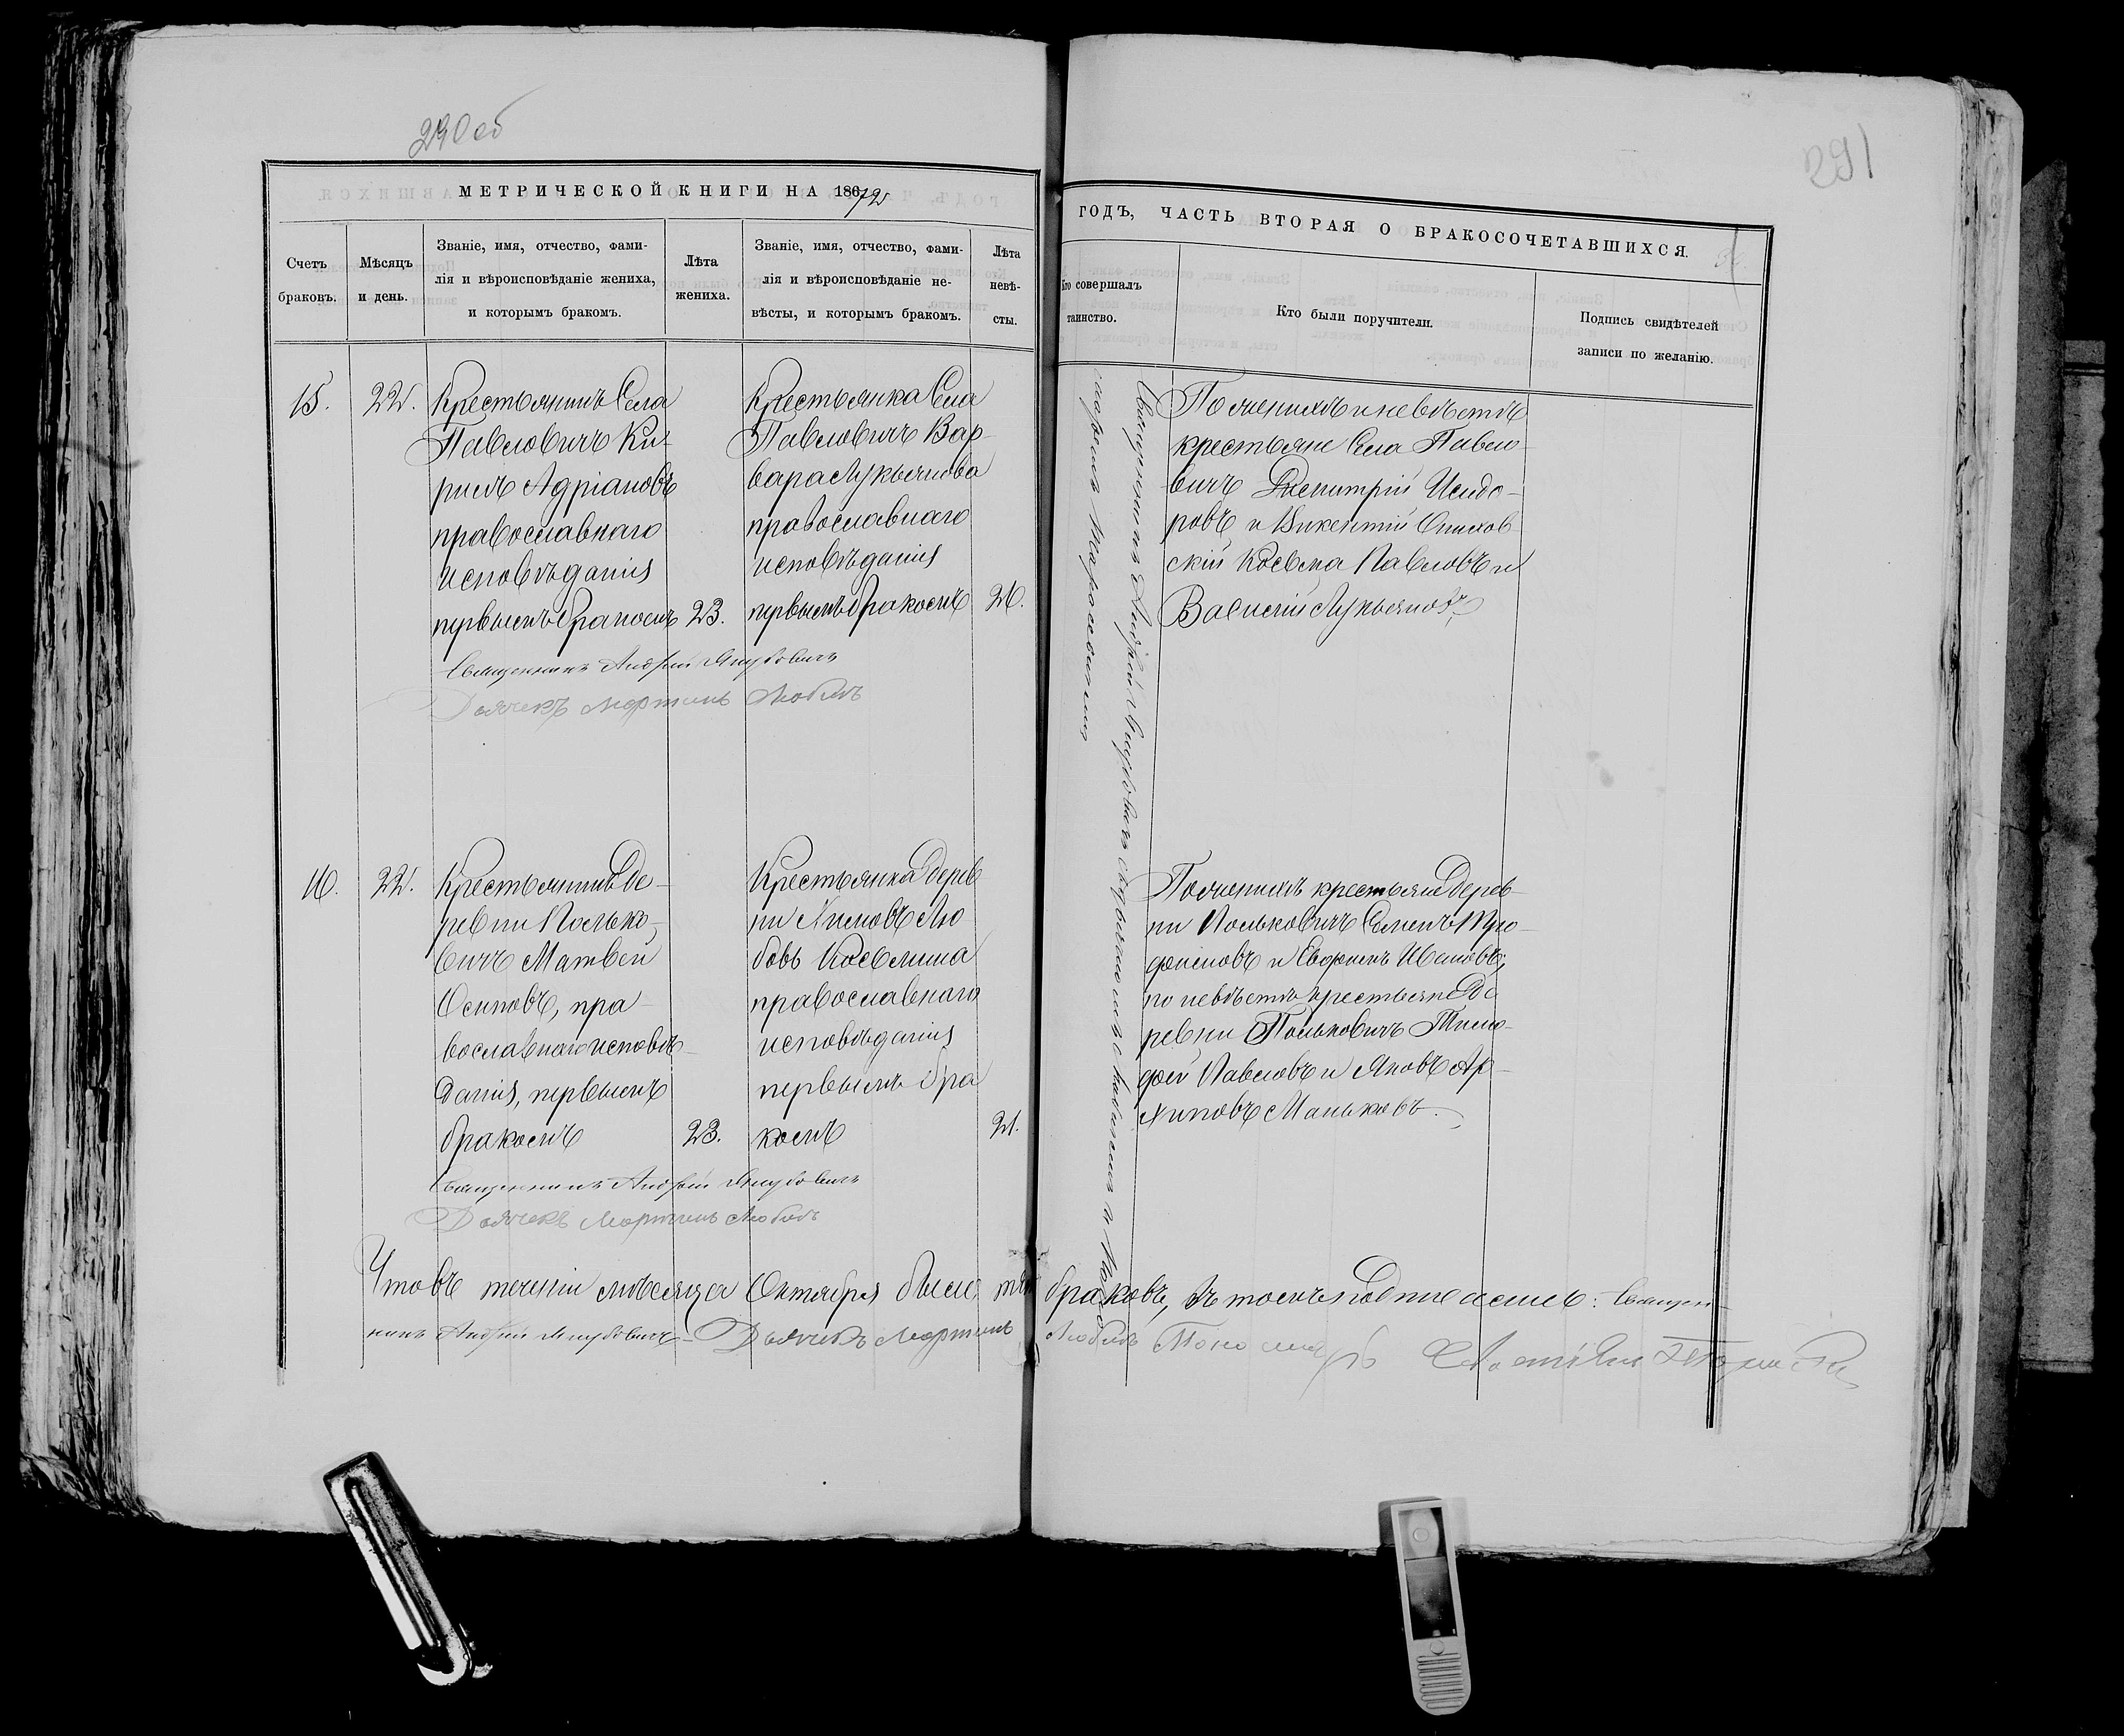 290 об
291
МЕТРИЧЕСКОЙ КНИГИ НА 1872
ГОДЪ, ЧАСТЬ ВТОРАЯ О БРАКОСОЧЕТАВШИХСЯ.
Счетъ
браковъ.
Мѣсяцъ
и день.
Званіе, имя, отчество, фами-
лія и вѣроисповѣданіе жениха,
и которымъ бракомъ.
Лѣта
жениха.
Званіе, имя, отчество, фами-
лія и вѣроисповѣданіе не-
вѣсты, и которымъ бракомъ.
Лѣта
невѣ-
сты.
Кто совершалъ
таинство.
Кто были поручители.
Подпись свидѣтелей
записи по желанію.
15.
22.
Крестьянинъ Села
Павловичъ Ки-
рилъ Адріановъ
православнаго
исповѣданія
первымъ бракомъ
23.
Крестьянка Села
Павловичъ Вар-
вара Лукьянова
православнаго
исповѣданія
первымъ бракомъ
26.
Священникъ Андрей Якубовичъ
По женихѣ и невѣстѣ
крестьяне Села Павло-
вичъ Димитрій Исидо-
ровъ и Викентій
скій Косьма Павловъ и
Василій Лукьяновъ
Дьячекъ Мартинъ
Священникъ Андрей Якубовичъ съ дьячкомъ
16.
22.
Крестьянинъ Де-
ревни Полько-
вичъ Матвей
Осиповъ, пра-
вославнаго исповѣ-
данія, первымъ
бракомъ
23.
Крестьянка Дерев
ни Лю
бовь Косьмина
православнаго
исповѣданія
первымъ бра
комъ
21.
По женихѣ крестьяне Дерев-
ни Польковичъ Семенъ Тро-
фимовъ и Ефремъ Ивановъ;
по невѣстѣ крестьяне Де
ревни Польковичъ Тимо-
фей Павловъ и Яковъ Ар-
хиповъ Маньковъ.
Священникъ Андрей Якубовичъ
Дьячекъ Мартинъ
Что въ теченіи мѣсяца Октября было браковъ, въ томъ подписались: Священ-
никъ Андрей Якубовичъ Дьячекъ Мартинъ Пономарь